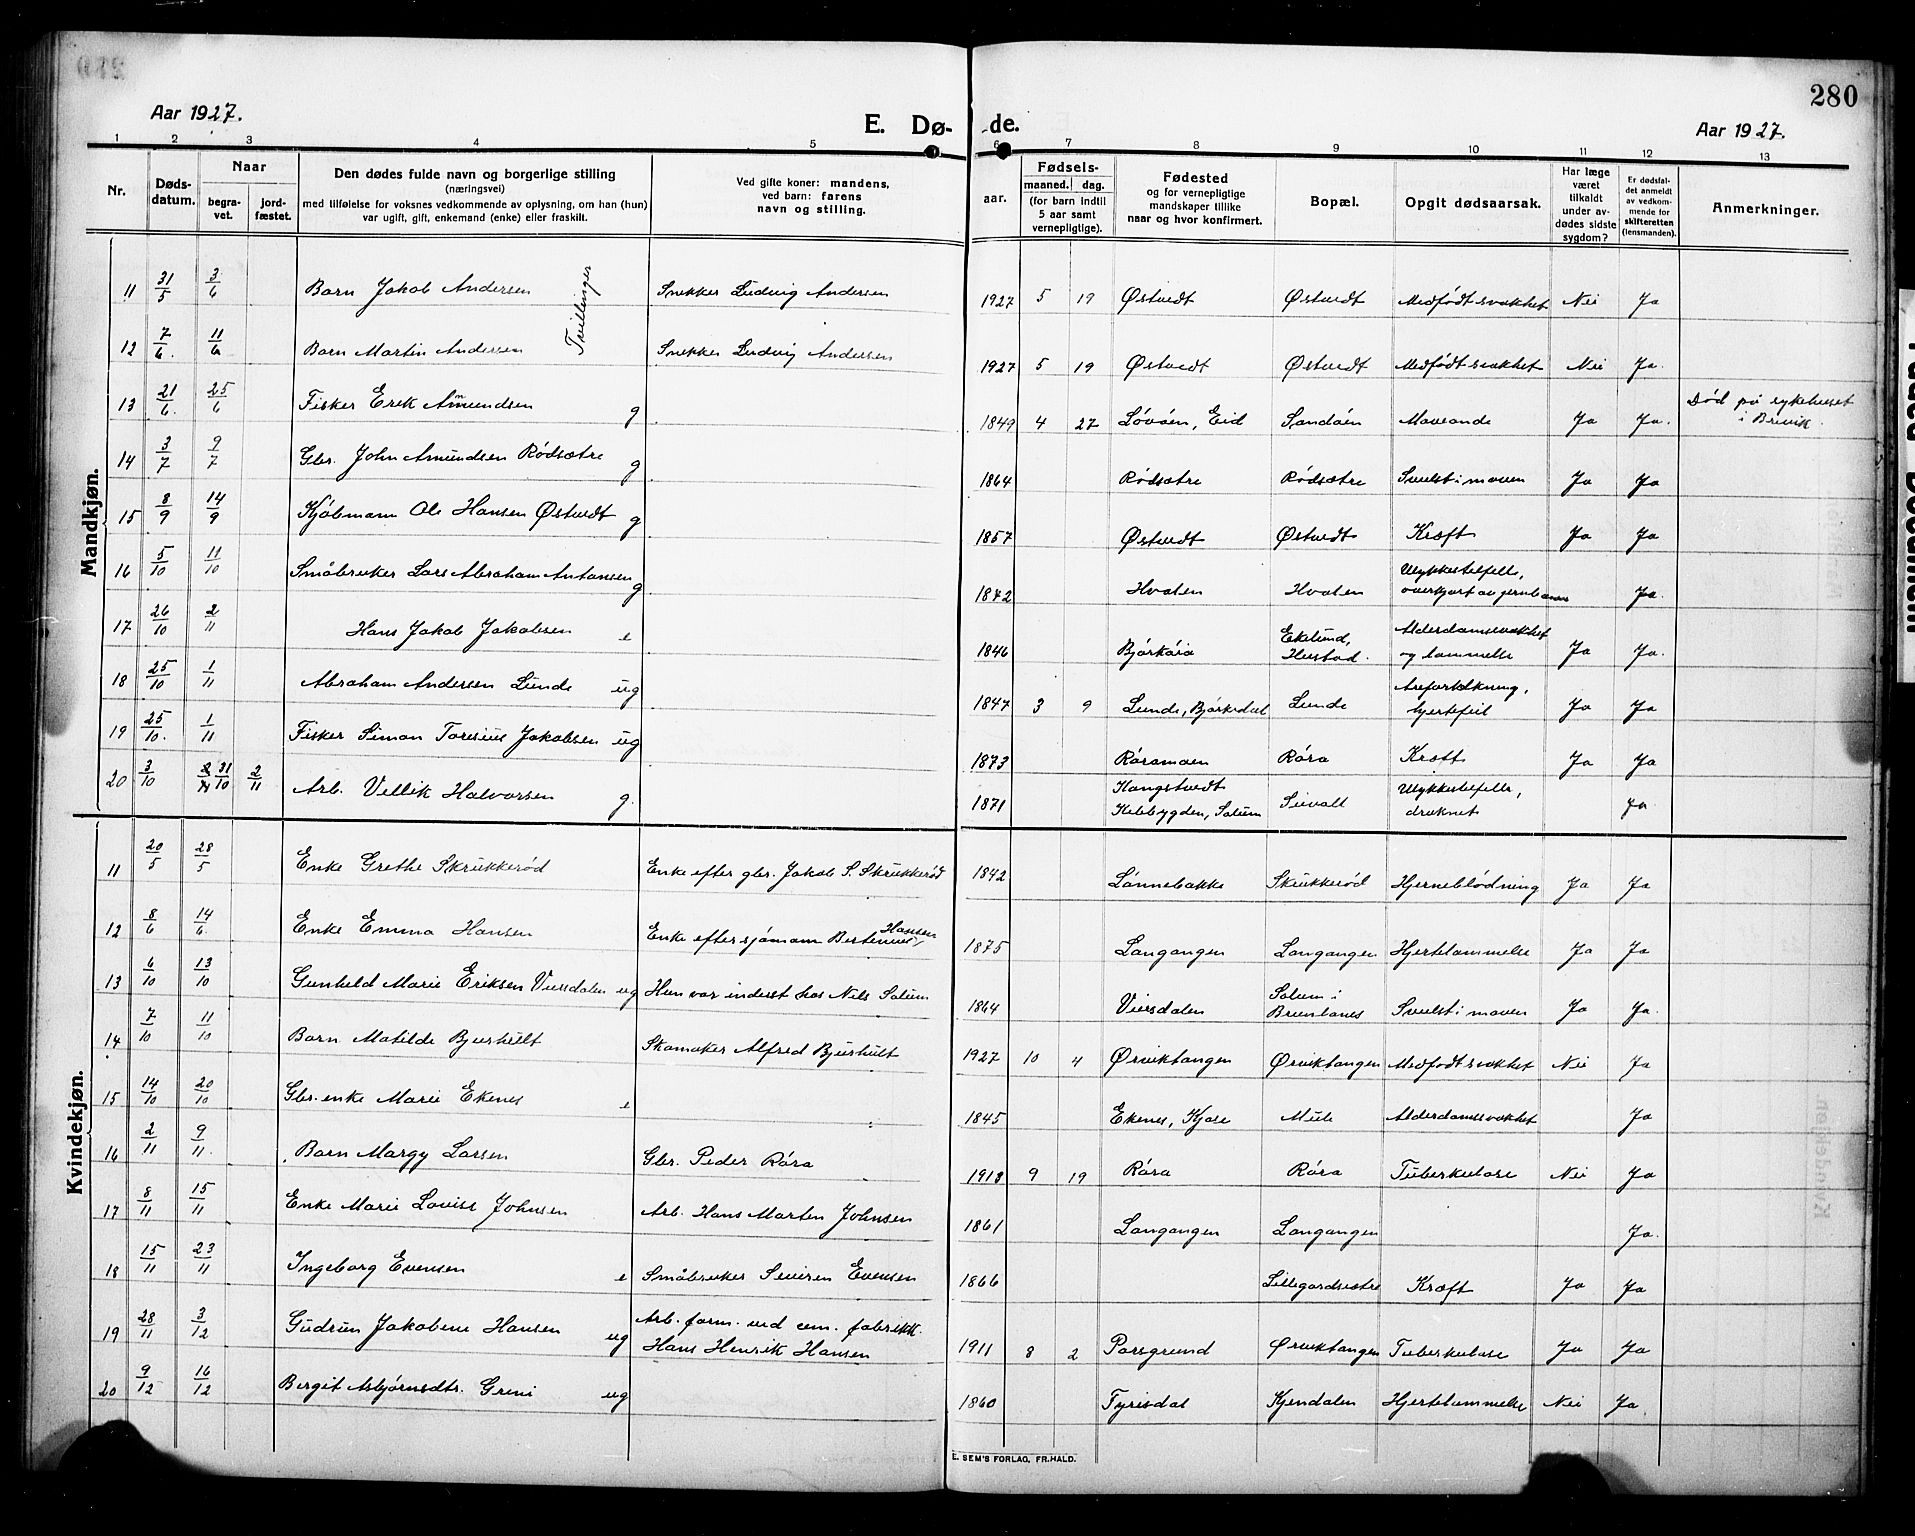 280
Aar 1927.
E. Dø- de.
Aar 1927.
1 2 3 4 5 6 7 8 9 10 11 12 13
Nr.
Døds-
datum.
Naar
begra-
vet.
jord-
fæstet.
Den dødes fulde navn og borgerlige stilling
(næringsvei)
med tilføielse for voksnes vedkommende av oplysning, om han (hun)
var ugift, gift, enkemand (enke) eller fraskilt.
Ved gifte koner: mandens,
ved barn: farens
navn og stilling.
aar.
Fødsels-
maaned. dag.
(for barn indtil
5 aar samt
vernepligtige).
Fødested
og for vernepligtige
mandskaper tillike
naar og hvor konfirmert.
Bopæl.
Opgit dødsaarsak.
Har læge
været
tilkaldt
under av-
dødes sidste
sygdom?
Er dødsfal-
det anmeldt
av vedkom-
mende for
skifteretten
(lensmanden).
Anmerkninger.
Mandkjøn.
Tvillinger
11 31/5 3/6 Barn Jakob Andersen Snekker Ludvig Andersen 1927 5 19 Østvedt Østvedt Medfødt svakhet Nei Ja
12 7/6. 11/6 Barn Martin Andersen Snekker Ludvig Andersen 1927 5 19 Østvedt Østvedt Medfødt svakhet Nei Ja.
13 21/6. 25/6 Fisker Erik Amundsen g 1849 4 27 Løvøen, Eid Sandøen Maveonde Ja Ja. Død på sykehuset
i Brevik.
14 3/7 9/7 Gbr. John Amundsen Rødsætre g 1864 Rødsætre Rødsætre Svulst i maven Ja Ja
15 8/9 14/9 Kjøbmann Ole Hansen Østvedt g 1857 Østvedt Østvedt Kræft Ja Ja
16 5/10 11/10 Småbruker Lars Abraham Antonsen g 1842 Hvalen Hvalen Ulykkestilfelle,
overkjørt av jernbanen Ja.
17 26/10 2/11 Hans Jakob Jakobsen e 1846 Bjørkøia Ekelund,
Herstad. Alderdomssvakhet
og lammelse Ja Ja.
18 25/10 1/11 Abraham Andersen Lunde ug 1847 3 9 Lunde, Bjørkedal Lunde Areforkalkning,
hjertefeil Ja Ja
19 25/10. 1/11 Fisker Simon Toresius Jakobsen ug 1873 Røramoen Røra Kræft Ja Ja
20 3/10 31/10 2/11 Arb. Vellik Halvorsen g. 1871 Kongstvedt
Kilebygden, Solum Sisvalt Ulykkestilfelle,
druknet Ja.
Kvindekjøn.
11 20/5 28/5 Enke Grethe Skrukkerød Enke efter gbr. Jakob S. Skrukkerød 1842 Lønnebakke Skrukkerød Hjerneblødning Ja Ja
12 8/6 14/6. Enke Emma Hansen Enke efter sjømann Bertinius Hansen 1875 Langangen Langangen Hjertelammelse Ja Ja
13 6/10 13/10 Gunhild Marie Eriksen Viersdalen ug Hun var inderst hos Nils Solum 1864 Viersdalen Solum i
Brunlanes Svulst i maven Ja Ja.
14 7/10 11/10 Barn Matilde Bjurhult Skomaker Alfred Bjurhult 1927 10 4 Ørviktangen Ørviktangen Medfødt svakhet Nei Ja
15 14/10 20/10 Gbr. enke Marie Ekenes e 1845 Ekenes, Kjose Mule Alderdomssvakhet Ja
16 2/11 9/11. Barn Margy Larsen Gbr. Peder Røra 1913 9 19 Røra Røra Tuberkulose Nei Ja
17 8/11 15/11 Enke Marie Lovise Johnsen Arb. Hans Morten Johnsen 1861 Langangen Langangen Ja.
18 15/11 23/11 Ingeborg Evensen e Småbruker Seviren Evensen 1866 Lillegardsætre Kræft Ja Ja
19 28/11 3/12 Gudrun Jakobine Hansen ug Arb. form. ved cem. fabrikk.
Hans Henrik Hansen 1911 8 2 Porsgrund Ørviktangen Tuberkulose Ja Ja
20 9/12 16/12 Birgit Asbjørnsdtr. Grini ug 1860 Tyrisdal Kjendalen Hjertelammelse Nei Ja
E. SEM'S FORLAG, FR.HALD.